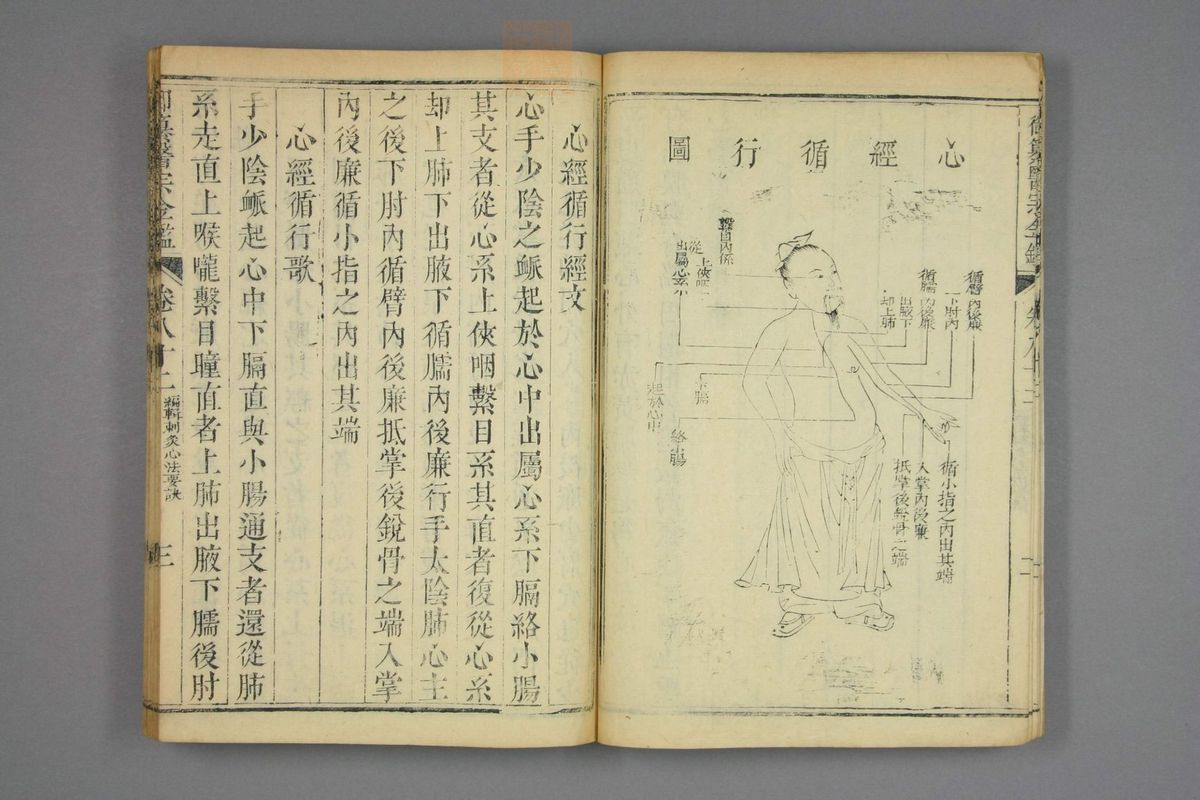 心經循行圖
循臂內後廉
下肘內
循臑內後廉
出腋下
却上肺
繫目內係
上俠咽
從
出屬心系
下膈
起於心中
絡小腸
循小指之內出其端
入掌內後廉
抵掌後銳骨之端
心經循行經文
心手少陰之脈起於心中出屬心系下膈絡小腸
其支者從心系上俠咽繫目系其直者復從心系
却上肺下出腋下下循臑內後廉行手太陰肺心主
之後下肘內循臂內後廉抵掌後銳骨之端入掌
內後廉循小指之內出其端
心經循行歌
手少陰脈起心中下膈直與小腸通支者還從肺
系走直上喉嚨繫目瞳直者上肺出腋下臑後肘
御纂醫宗金鑑
卷八十二
編輯刺灸心法要訣
三